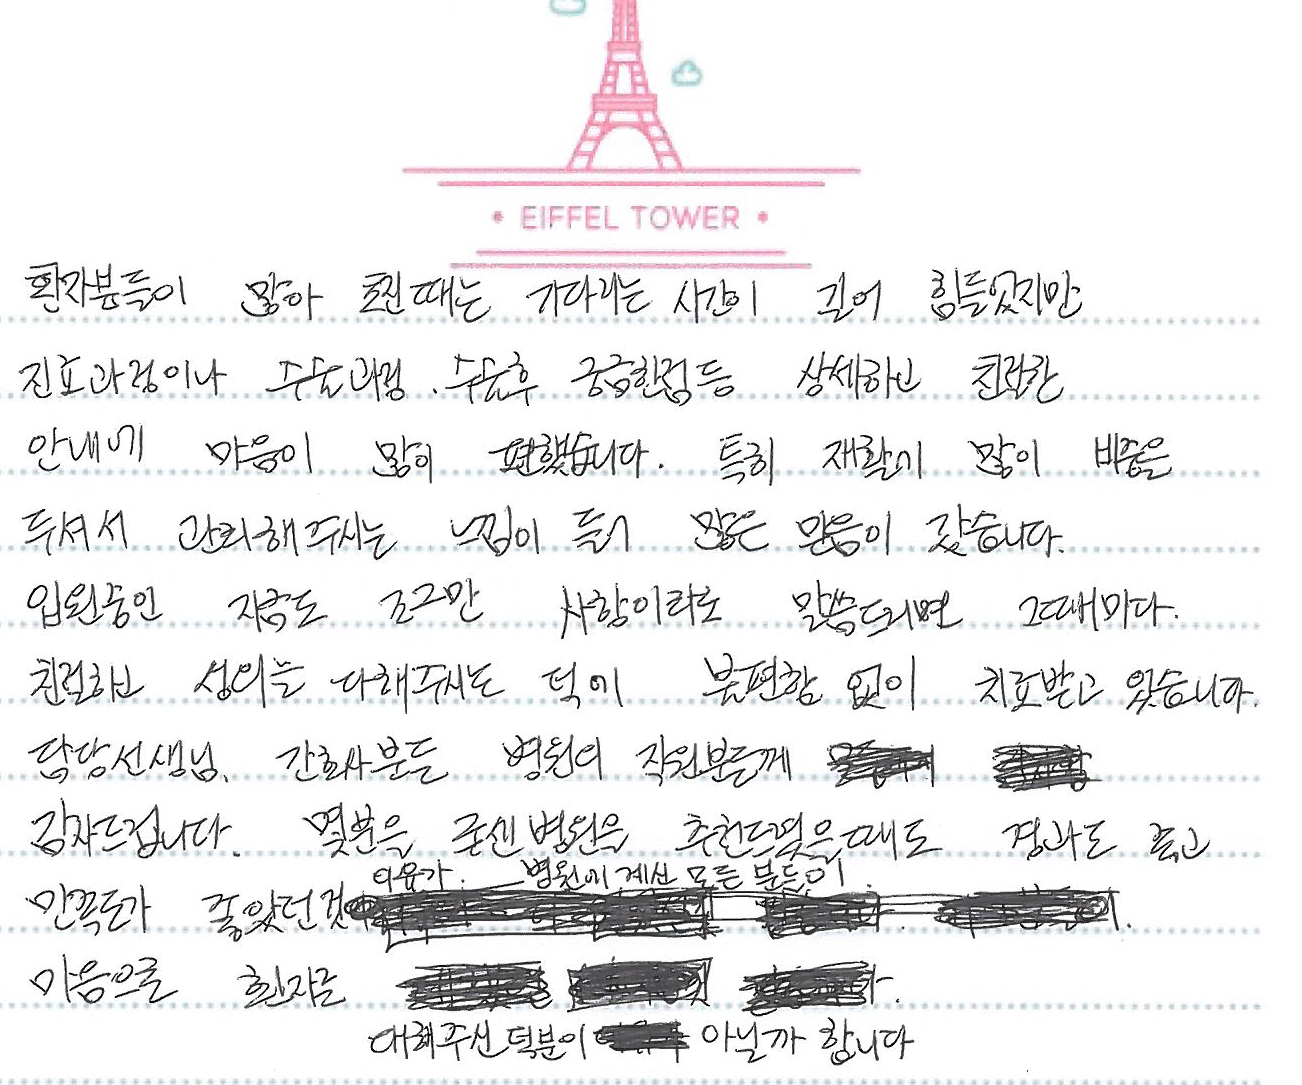 EIFFEL TOWER
환자분들이 많아 초진때는 기다리는 시간이 길어 힘들었지만
진료과정이나 수술과정. 수술후 궁금한점등 상세하고 친절한
안내에 마음이 많이 편했습니다. 특히 재활에 많이 비중을
두셔서 관리해주시는 느낌이 들어 많은 믿음이 갔습니다.
입원중인 지금도 조그만 사항이라도 말씀드리면 그때마다.
친절하고 성의를 다해주시는 덕에 불편함 없이 치료받고 있습니다.
담당선생님, 간호사분들 병원의 직원분들께
감사드립니다. 몇분을 굳센병원을 추천드렸을때도 경과도 좋고
만족도가 좋았던것
이유가. 병원에 계신 모든 분들이
마음으로 환자를
대해주신 덕분이 아닐까 합니다